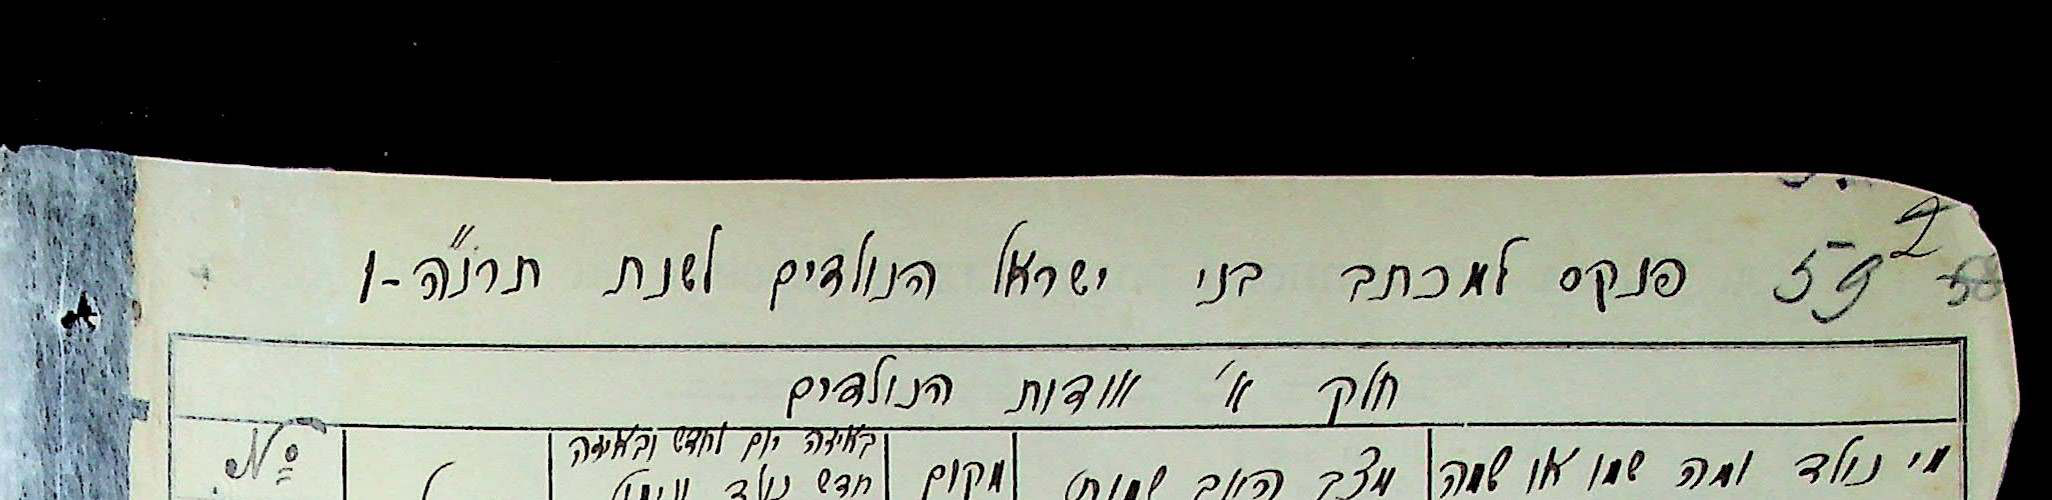 2
59 58
פנקס למכתב בני ישראל הנולדים לשנת תרנ"ה-ו
חלק א' אודות הנולדים
מי נולד ומה שמו או שמה
מצב האב שמות
מקום
באיזה יום לחדש ובאיזה
חדש נולד
№